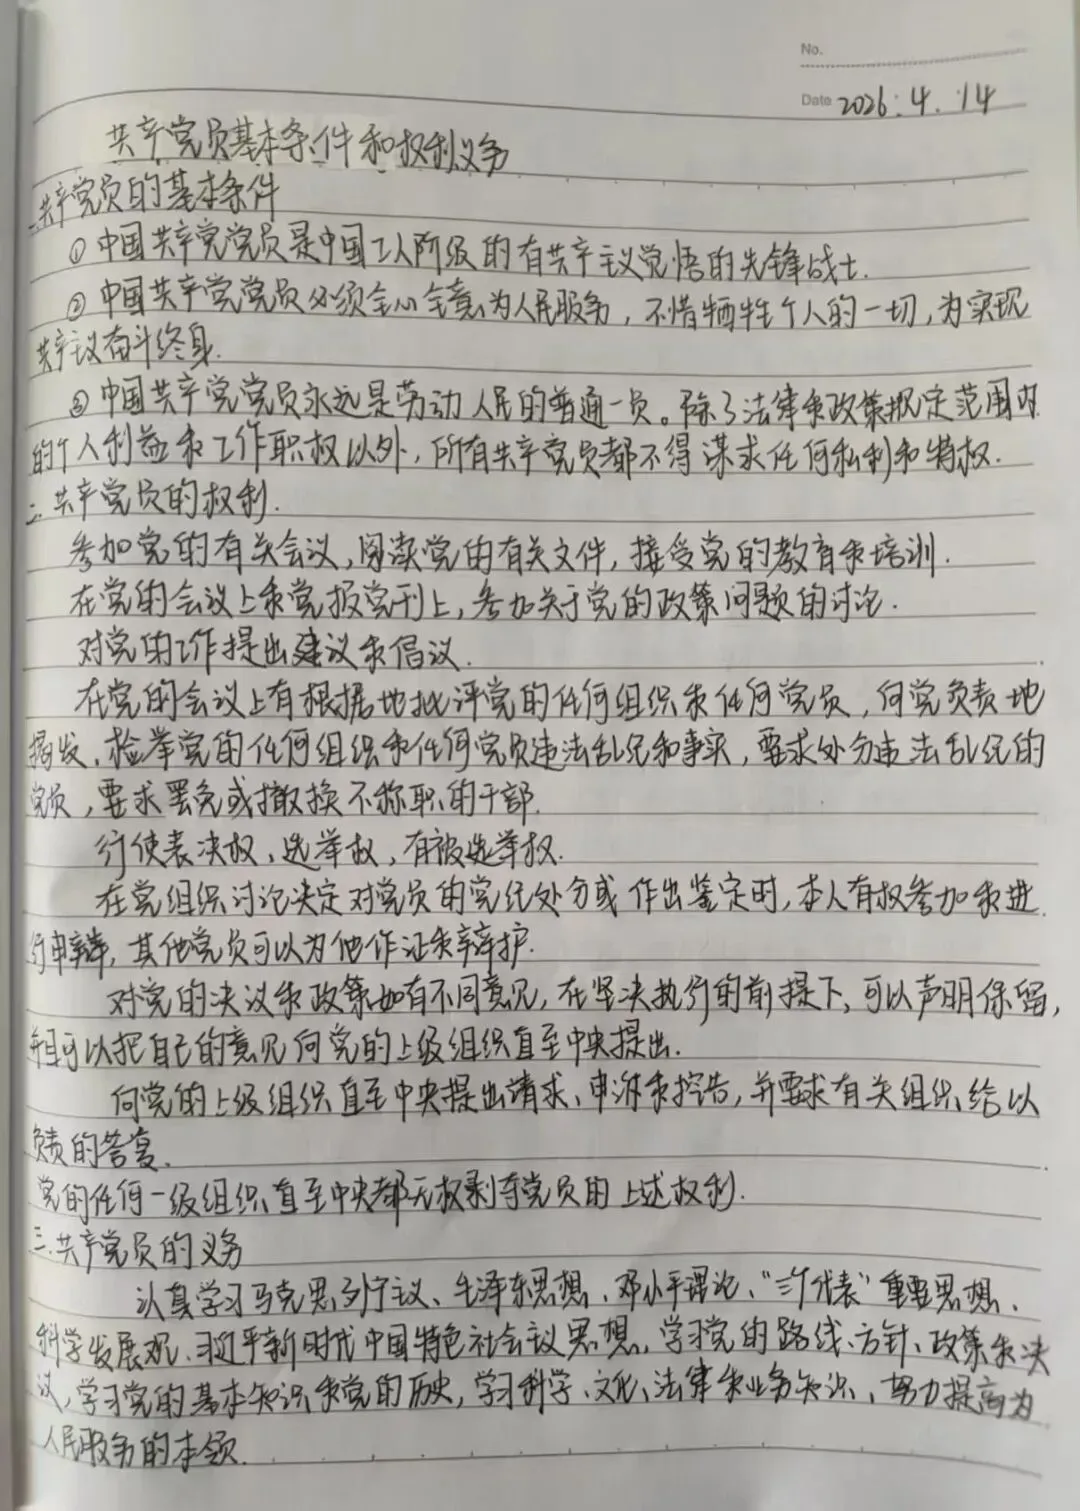 No.
Date 2026.4.14
共产党员基本条件和权利义务
一.共产党员的基本条件
① 中国共产党党员是中国工人阶级的有共产主义觉悟的先锋战士.
② 中国共产党党员必须全心全意为人民服务，不惜牺牲个人的一切，为实现
共产主义奋斗终身.
③ 中国共产党党员永远是劳动人民的普通一员。除了法律和政策规定范围内
的个人利益和工作职权以外，所有共产党员都不得谋求任何私利和特权.
二.共产党员的权利.
参加党的有关会议，阅读党的有关文件，接受党的教育和培训.
在党的会议上和党报党刊上，参加关于党的政策问题的讨论.
对党的工作提出建议和倡议.
在党的会议上有根据地批评党的任何组织和任何党员，向党负责地
揭发、检举党的任何组织和任何党员违法乱纪和事实，要求处分违法乱纪的
党员，要求罢免或撤换不称职的干部.
行使表决权、选举权，有被选举权.
在党组织讨论决定对党员的党纪处分或作出鉴定时，本人有权参加和进
行申辩，其他党员可以为他作证和辩护.
对党的决议和政策如有不同意见，在坚决执行的前提下，可以声明保留，
并且可以把自己的意见向党的上级组织直至中央提出.
向党的上级组织直至中央提出请求、申诉和控告，并要求有关组织给以
负责的答复.
党的任何一级组织直至中央都无权剥夺党员的上述权利.
三.共产党员的义务
认真学习马克思列宁主义、毛泽东思想、邓小平理论、“三个代表”重要思想、
科学发展观、习近平新时代中国特色社会主义思想，学习党的路线、方针、政策和决
议，学习党的基本知识和党的历史，学习科学、文化、法律和业务知识、努力提高为
人民服务的本领.